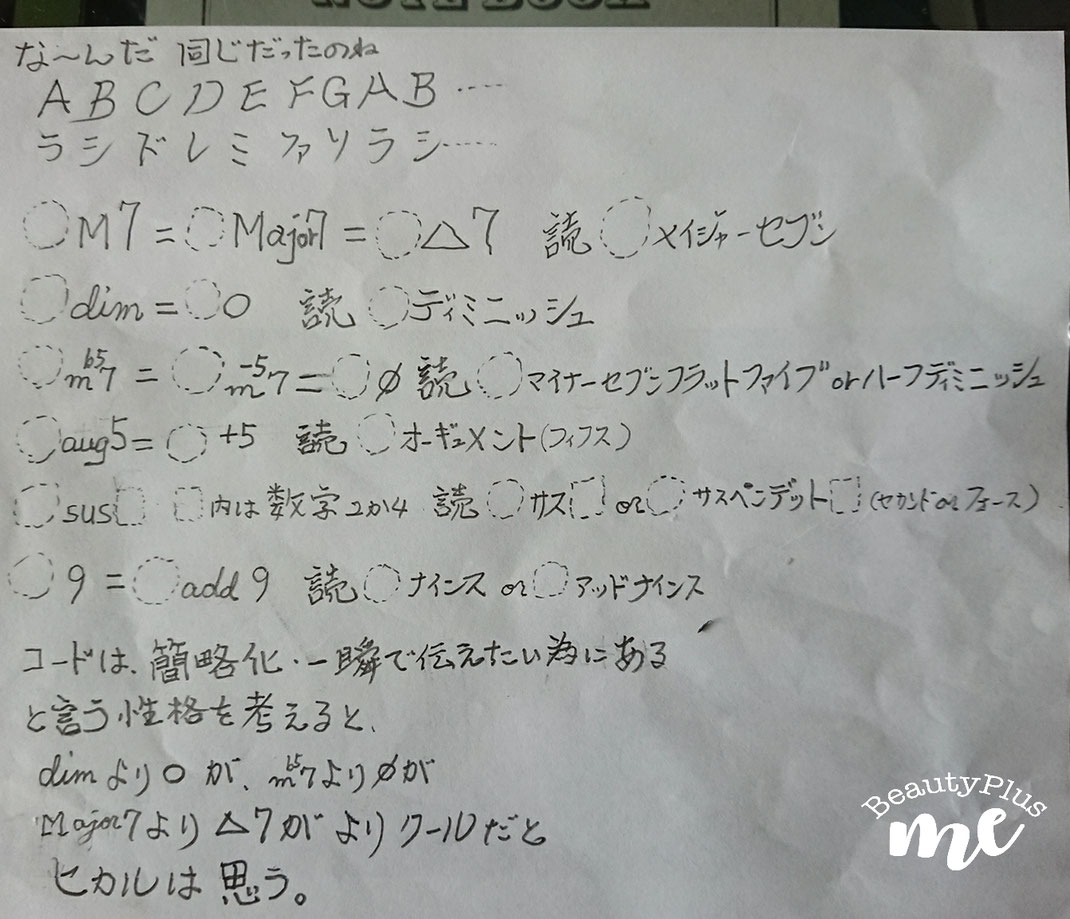 NOTE BOOK
な〜んだ 同じだったのね
A B C D E F G A B ‥‥
ラ シ ド レ ミ ファ ソ ラ シ ‥‥
◌M7 = ◌Major7 = ◌△7 読 ◌メイジャーセブン
◌dim = ◌○ 読 ◌ディミニッシュ
◌m7♭5 = ◌m7-5 = ◌ø 読 ◌マイナーセブンフラットファイブorハーフディミニッシュ
◌aug5 = ◌+5 読 ◌オーギュメント(フィフス)
◌sus□ □内は数字2か4 読 ◌サス□ or ◌サスペンデット□(セカンド or フォース)
◌9 = ◌add9 読 ◌ナインス or ◌アッドナインス
コードは、簡略化・一瞬で伝えたい為にある
と言う性格を考えると、
dimより○が、m7♭5よりøが
Major7より△7がよりクールだと
ヒカルは思う。
BeautyPlus
me